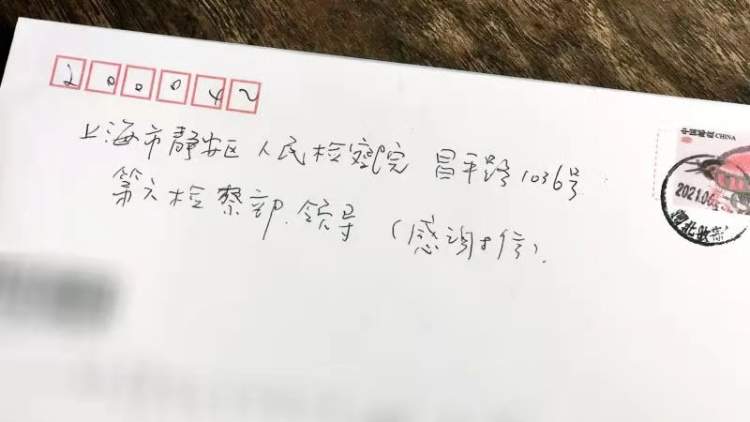 200042
上海市静安区人民检察院 昌平路1036号
第六检察部.领导 (感谢信).
中国邮政 CHINA
2021.06